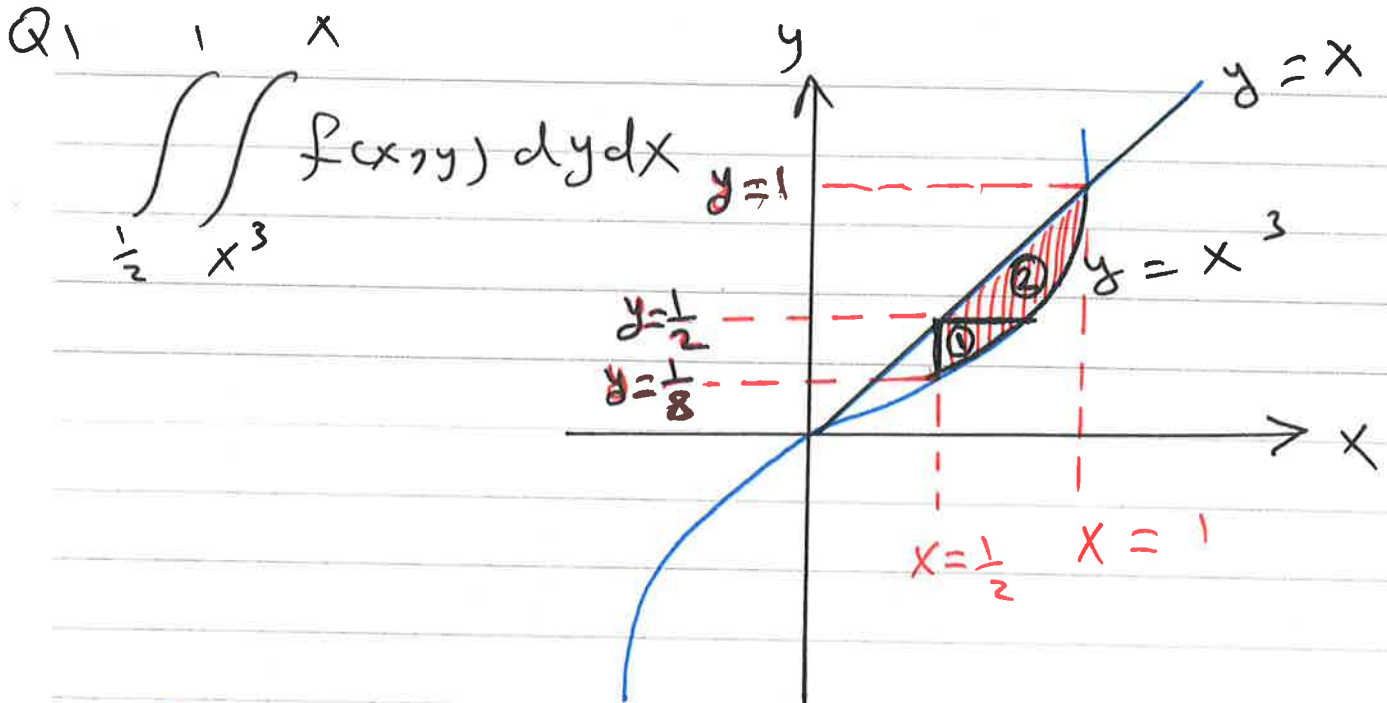 Q1
∫_{1/2}^{1} ∫_{x^3}^{x} f(x,y) dy dx
y
y = x
y = 1
②
y = x^3
y = 1/2
①
y = 1/8
x
x = 1/2
x = 1